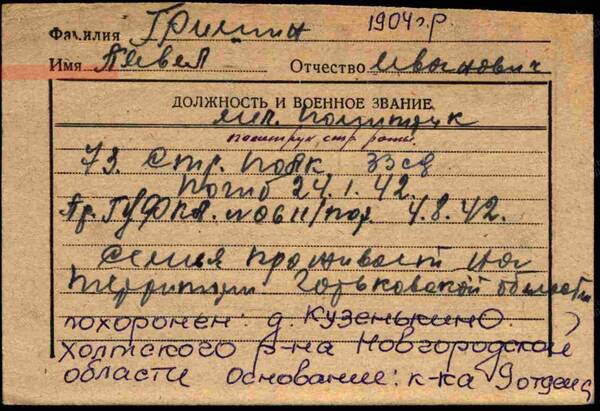 Фамилия Гришин 1904 г.р.
Имя Павел Отчество Иванович
ДОЛЖНОСТЬ И ВОЕННОЕ ЗВАНИЕ
мл. политрук
политрук стр. роты.
73. Стр. Полк 33 сд
Погиб 24.1.42.
Пр. ГУФКА. № 0611/пог 4.8.42.
Семья проживает на
территории Горьковской области
похоронен: д. Кузенькино
Холмского р-на Новгородской
области основание: к-ка 9 отдела